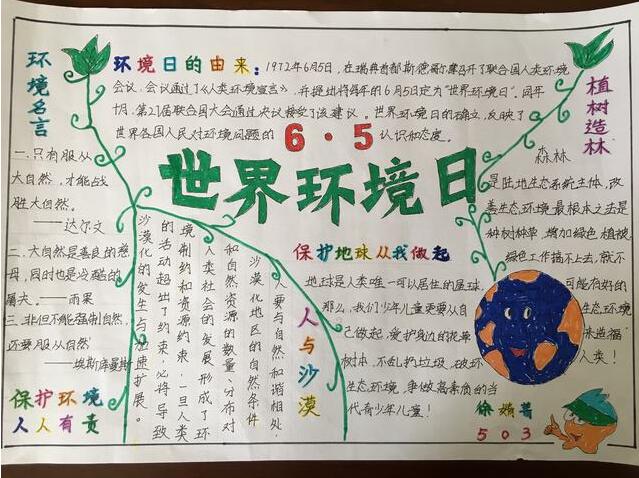 环境名言
一.只有服从
大自然,才能战
胜大自然。
——达尔文
二、大自然是善良的慈
母,同时也是冷酷的
屠夫。——雨果
三、非但不能强制自然,
还要服从自然
——埃斯库曼斯
保护环境
人人有责
环境日的由来:1972年6月5日,在瑞典首都斯德哥尔摩召开了联合国人类环境
会议,会议通过了《人类环境宣言》,并提出将每年的6月5日定为“世界环境日”。同年
十月,第27届联合国大会通过决议接受了该建议。世界环境日的确立,反映了
世界各国人民对环境问题的
认识和态度。
6·5
世界环境日
植树造林
森林
是陆地生态系统主体,改
善生态环境最根本之法是
种树种草,增加绿色植被,
绿色工作搞不上去,就不
可能有好的
生态环境
来造福
人类!
保护地球从我做起
地球是人类唯一可以居住的星球,
那么,我们少年儿童更要从自
己做起,爱护身边的花草
树木,不乱扔垃圾,破坏
生态环境,争做高素质的当
代青少年儿童!
人与沙漠
人要与自然和谐相处,
沙漠化地区的自然条件
和自然资源的数量、分布对
人类社会的发展形成了环
境制约和资源约束,一旦人类
的活动超出了约束,必将导致
沙漠化的发生与加速扩展。
503